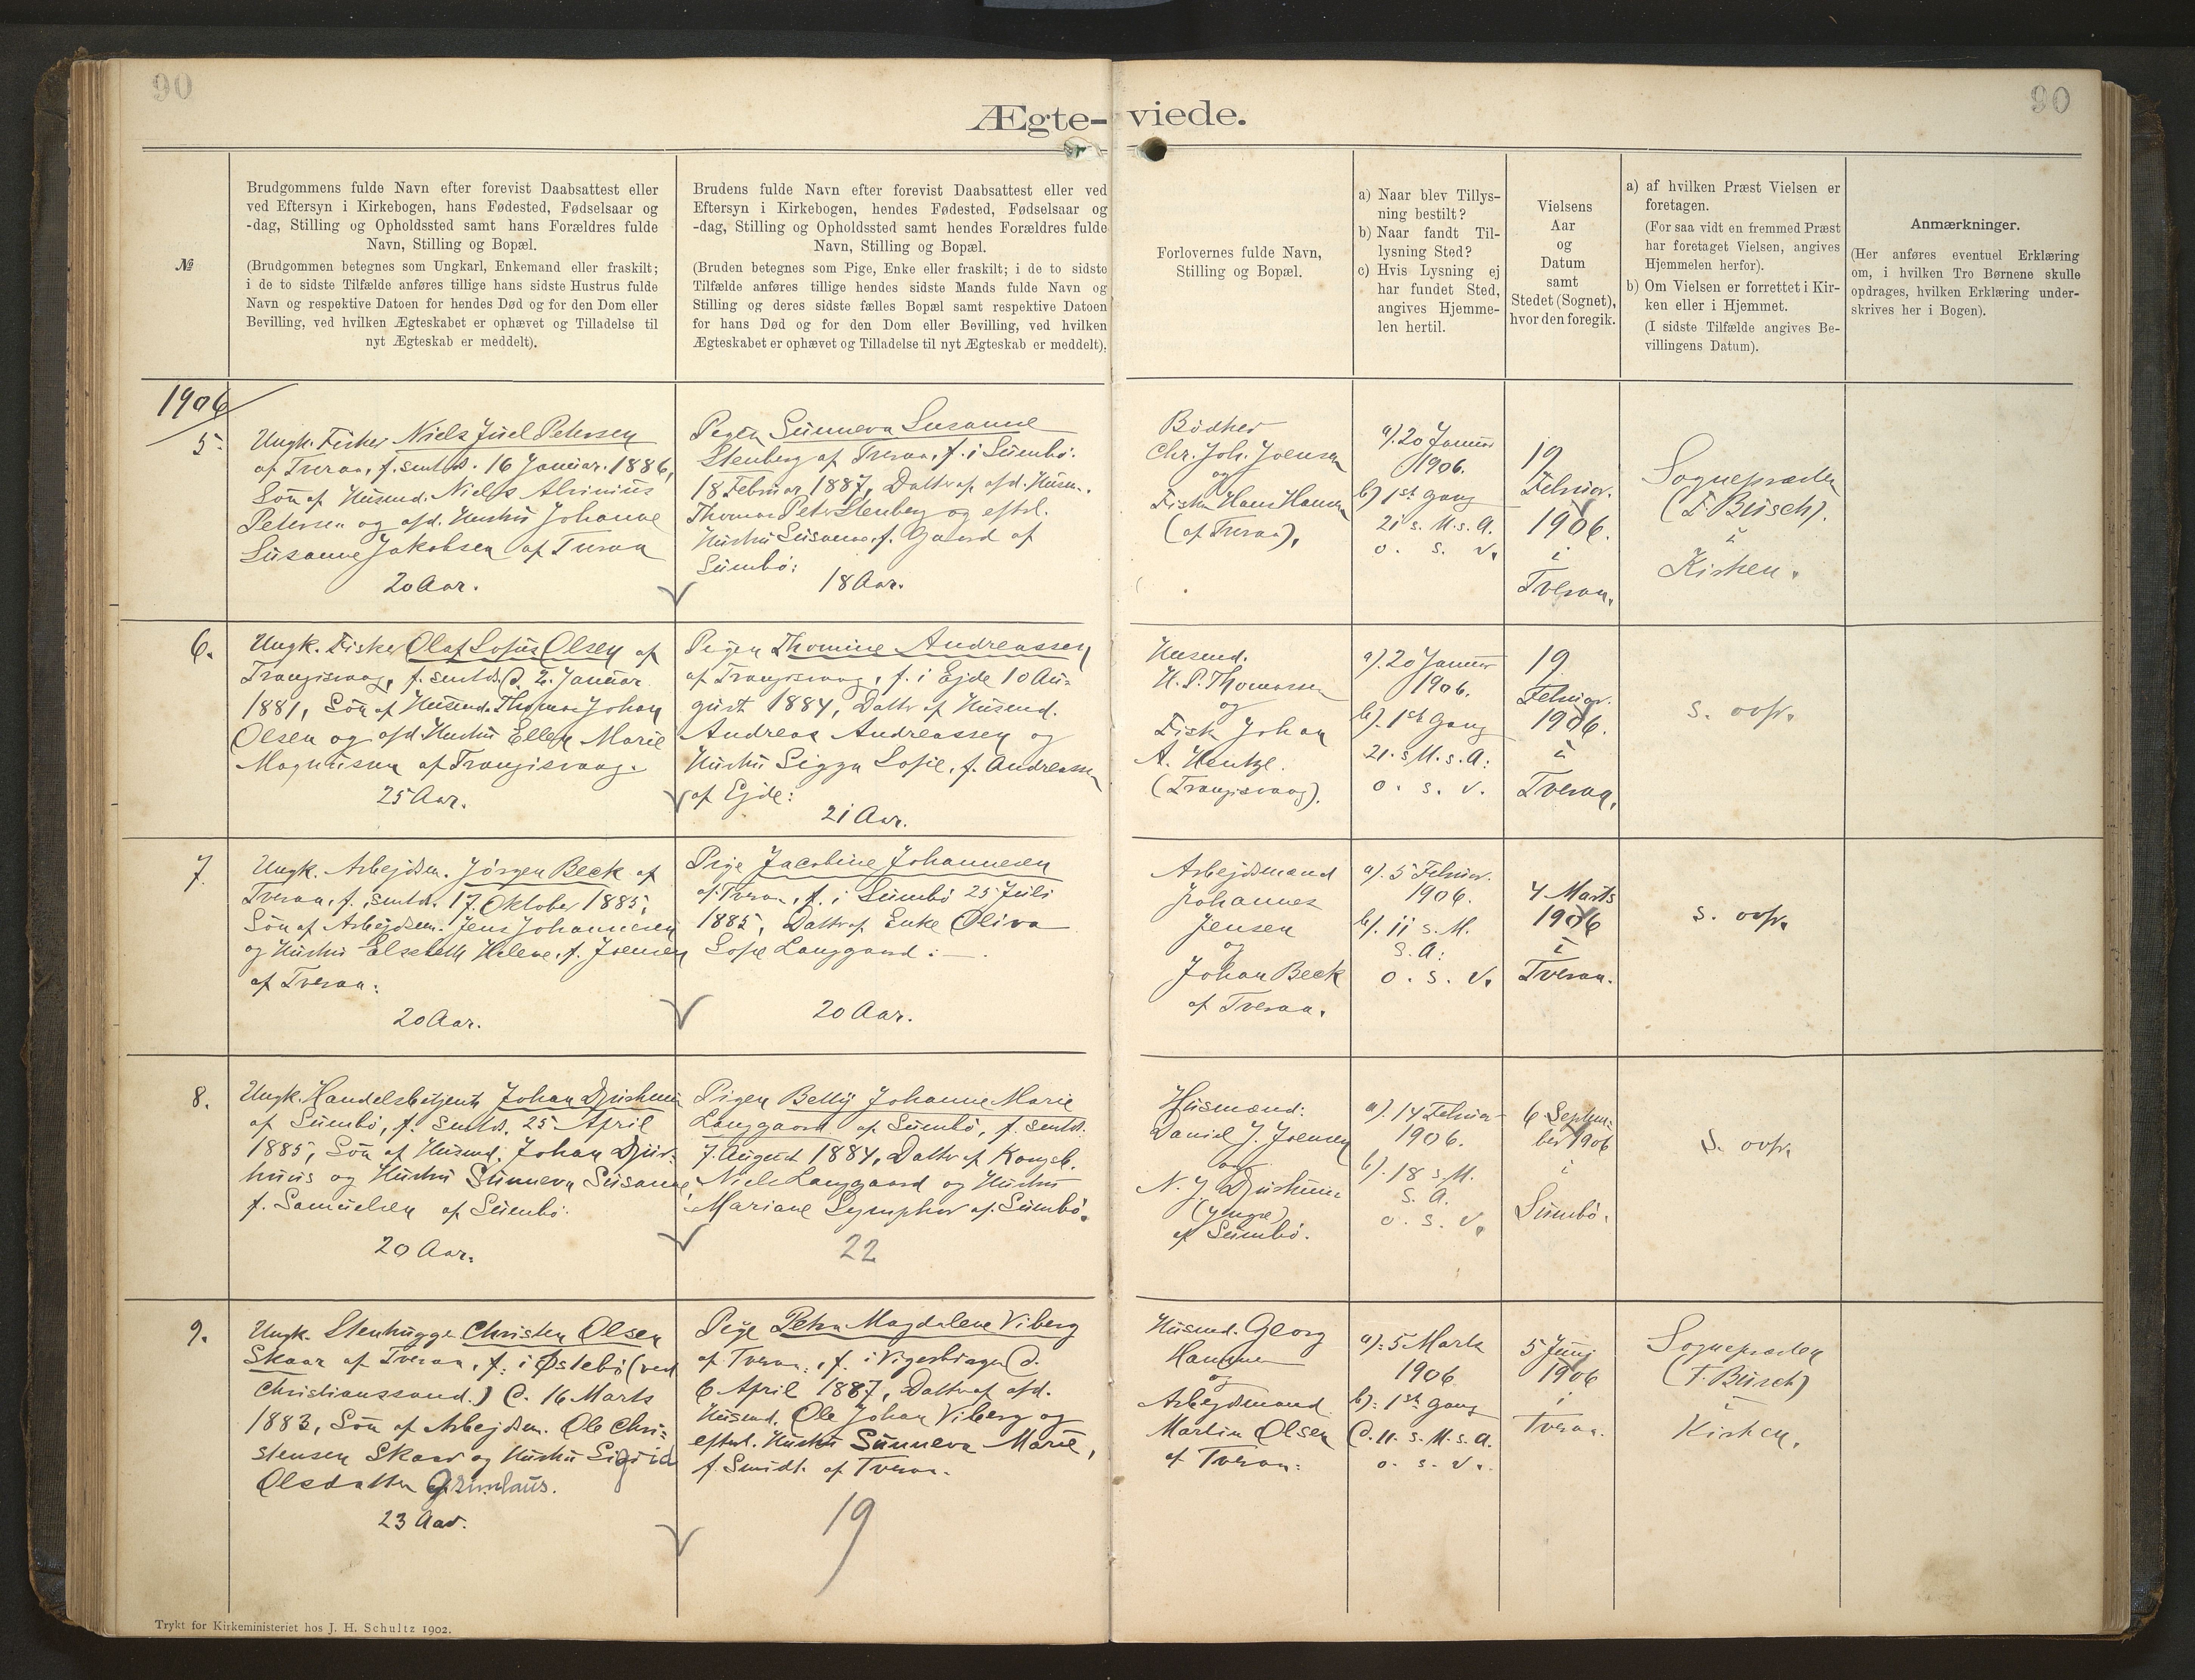 90
90
Ægte- viede.
№
Brudgommens fulde Navn efter forevist Daabsattest eller
ved Eftersyn i Kirkebogen, hans Fødested, Fødselsaar og
-dag, Stilling og Opholdssted samt hans Forældres fulde
Navn, Stilling og Bopæl.
(Brudgommen betegnes som Ungkarl, Enkemand eller fraskilt;
i de to sidste Tilfælde anføres tillige hans sidste Hustrus fulde
Navn og respektive Datoen for hendes Død og for den Dom eller
Bevilling, ved hvilken Ægteskabet er ophævet og Tilladelse til
nyt Ægteskab er meddelt).
Brudens fulde Navn efter forevist Daabsattest eller ved
Eftersyn i Kirkebogen, hendes Fødested, Fødselsaar og
-dag, Stilling og Opholdssted samt hendes Forældres fulde
Navn, Stilling og Bopæl.
(Bruden betegnes som Pige, Enke eller fraskilt; i de to sidste
Tilfælde anføres tillige hendes sidste Mands fulde Navn og
Stilling og deres sidste fælles Bopæl samt respektive Datoen
for hans Død og for den Dom eller Bevilling, ved hvilken
Ægteskabet er ophævet og Tilladelse til nyt Ægteskab er meddelt).
Forlovernes fulde Navn,
Stilling og Bopæl.
a) Naar blev Tillys-
ning bestilt?
b) Naar fandt Til-
lysning Sted?
c) Hvis Lysning ej
har fundet Sted,
angives Hjemme-
len hertil.
Vielsens
Aar
og
Datum
samt
Stedet (Sognet),
hvor den foregik.
a) af hvilken Præst Vielsen er
foretagen.
(For saa vidt en fremmed Præst
har foretaget Vielsen, angives
Hjemmelen herfor).
b) Om Vielsen er forrettet i Kir-
ken eller i Hjemmet.
(I sidste Tilfælde angives Be-
villingens Datum).
Anmærkninger.
(Her anføres eventuel Erklæring
om, i hvilken Tro Børnene skulle
opdrages, hvilken Erklæring under-
skrives her i Bogen).
1906
5.
Ungk. Fisker Niels Juel Petersen
af Tveraa, f. smstds. 16 Januar 1886,
Søn af Husmd. Niels
Petersen og afd. Hustru Johanne
Susanne Jakobsen af Tveraa
20 Aar.
Pigen Sunneva Susanne
Stenberg af Tveraa, f. i Sumbø.
18 Februar 1887, Datter af afd. Husm.
Thomas Peter Stenberg og eftrl.
Hustru Susanne, f. Gaard af
Sumbø:
18 Aar.
Bødker
Chr. Joh. Joensen
og
Fisker Hans Hansen
(af Tveraa).
a). 20 Januar
1906.
b) 1st Gang
21 s. M. s. A.
o. s. v.
19
Februar.
1906.
i
Tveraa.
Sognepræsten
(F. Busch).
i
Kirken.
6.
Ungk. Fisker Olaf Sofus Olsen af
Trangisvaag, f. smstds. d. 2. Januar
1881, Søn af Husmd. Thomas Johan
Olsen og afd. Hustru Ellen Marie
Magnussen af Trangisvaag.
25 Aar.
Pigen Thomine Andreassen
af Trangisvaag, f. i Ejde 10 Au-
gust 1884, Datter af Husmd.
Andreas Andreassen og
Hustru Sigga Sofie, f. Andreassen
af Ejde:
21 Aar.
Husmd.
H. P. Thomassen
og
Fisk. Johan
A. Hentze.
(Trangisvaag).
a). 20 Januar
1906.
b). 1st Gang
21. s. M. s. A:
o. s. v.
19
Februar.
1906.
i
Tveraa.
s. ovfr.
7.
Ungk. Arbejdsm. Jørgen Beck af
Tveraa, f. smstds. 17. Oktober 1885,
Søn af Arbejdsm. Jens Johannesen
og Hustru Elsebeth Helene, f. Joensen
af Tveraa:
20 Aar.
Pige Jacobine Johannesen
af Tveraa, f. i Sumbø 25 Juli
1885, Datter af Enke Oliva
Sofie Langgaard:
20 Aar.
Arbejdsmænd
Johannes
Jensen
og
Johan Beck
af Tveraa.
a). 5 Februar.
1906.
b). 11 s. M.
s. A:
o. s. v.
4 Marts
1906
i
Tveraa.
s. ovfr.
8.
Ungk. Handelsbetjent Johan Djurhuus
af Sumbø, f. smstds. 25 April
1885, Søn af Husmd. Johan Djur-
huus og Hustru Sunneva Susanne,
f. Samuelsen af Sumbø.
20 Aar.
Pigen Betty Johanne Marie
Langgaard af Sumbø, f. smstds.
7. August 1884, Datter af Kongsb.
Niels Langgaard og Hustru
Mariane Symphor af Sumbø.
22
Husmænd:
Daniel J. Joensen
og
N. J. Djurhuus
(yngre)
af Sumbø.
a). 14 Februar
1906.
b). 18 s. M.
s. A.
o. s. v.
6 Septem-
ber 1906
i
Sumbø.
s. ovfr.
9.
Ungk. Stenhugger Christen Olsen
Skaar af Tveraa, f. i Østebø (ved
Christianssand.) d. 16 Marts
1883, Søn af Arbejdsm. Ole Chri-
stensen Skaar og Hustru Sigrid
Olsdatter
23 Aar.
Pige Petra Magdalene Viberg
af Tveraa, f. i d.
6 April 1887, Datter af afd.
Husmd. Ole Johan Viberg og
eftrl. Hustru Sunneva Marie,
f. Smidt af Tveraa.
19
Husmd. Georg
Hansen
og
Arbejdsmand
Martin Olsen
af Tveraa:
a): 5 Marts
1906
b): 1st Gang
d. 11. s. M. s. A.
o. s. v.
5 Juni
1906
i
Tveraa.
Sognepræsten
(F. Busch)
i
Kirken.
Trykt for Kirkeministeriet hos J. H. Schultz 1902.